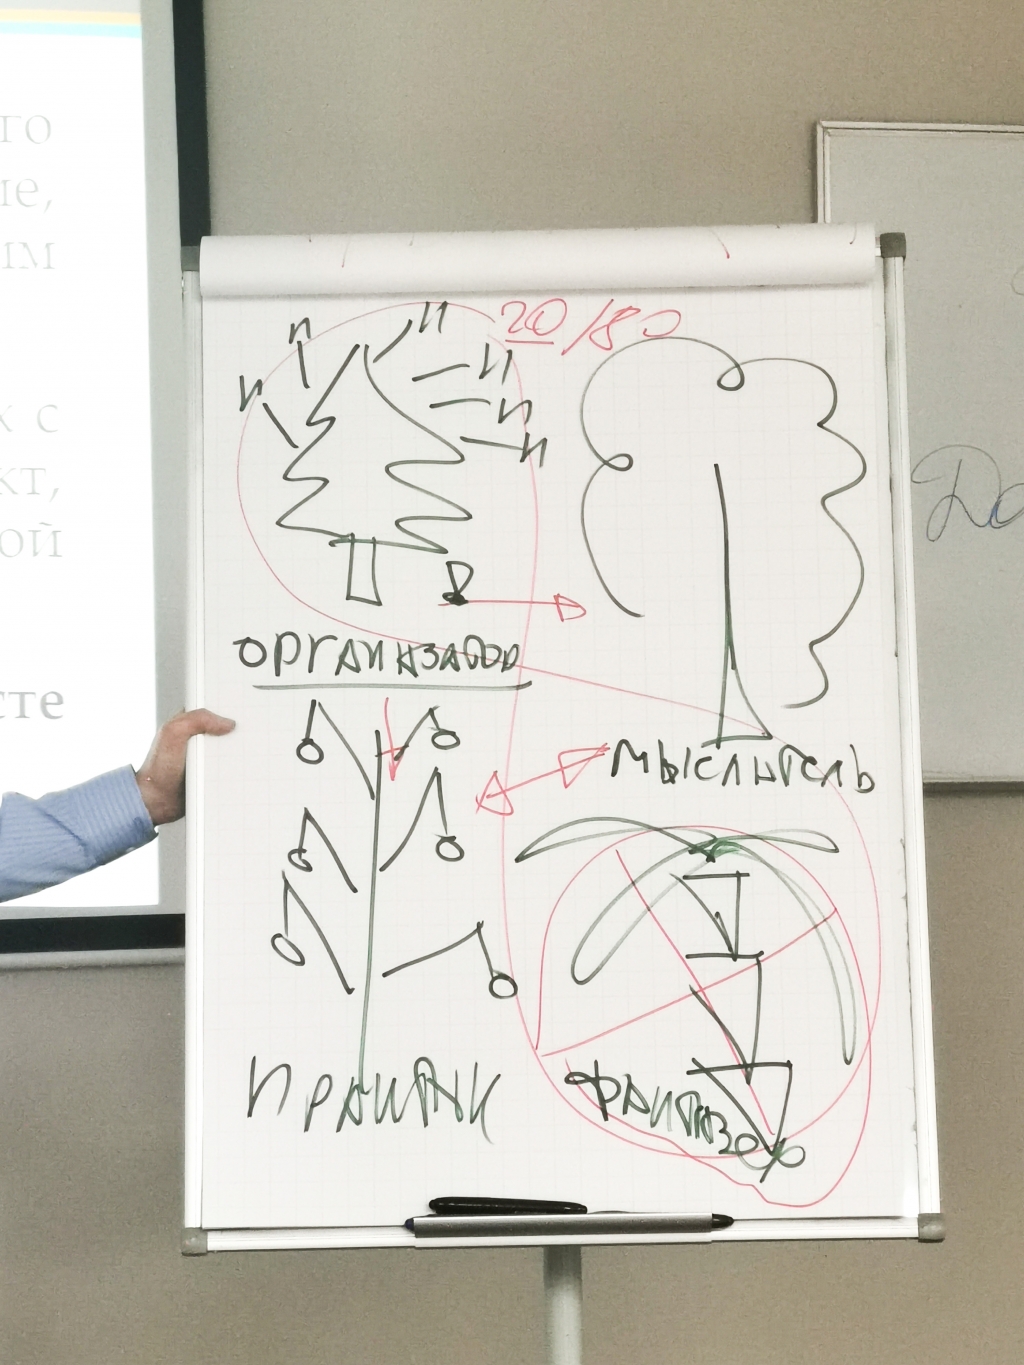 го
ие,
ым
к с
кт,
ой
сте
20/80
И
И
И
И
И
И
ОРГАНИЗАТОР
МЫСЛИТЕЛЬ
ПРАКТИК
ФАНТАЗЕР
До